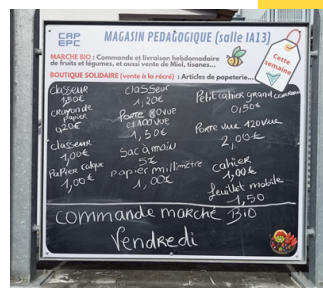 CAP
EPC
MAGASIN PEDAGOGIQUE (salle IA13)
MARCHE BIO : Commande et livraison hebdomadaire
de fruits et légumes, et aussi vente de Miel, tisanes...
BOUTIQUE SOLIDAIRE (vente à la récré) : Articles de papeterie...
Cette
semaine
classeur
1,80€
crayon de
papier
0,20€
classeur
1,00€
Papier calque
1,00€
classeur
1,20€
Porte 80 vue
et 100 vue
1,50€
Sac à main
5€
papier millimètre
1,00€
Petit cahier grand
0,50€
Porte vue 120 vue
2,00€
cahier
1,00€
feuillet mobile
1,50
commande marché Bio
Vendredi